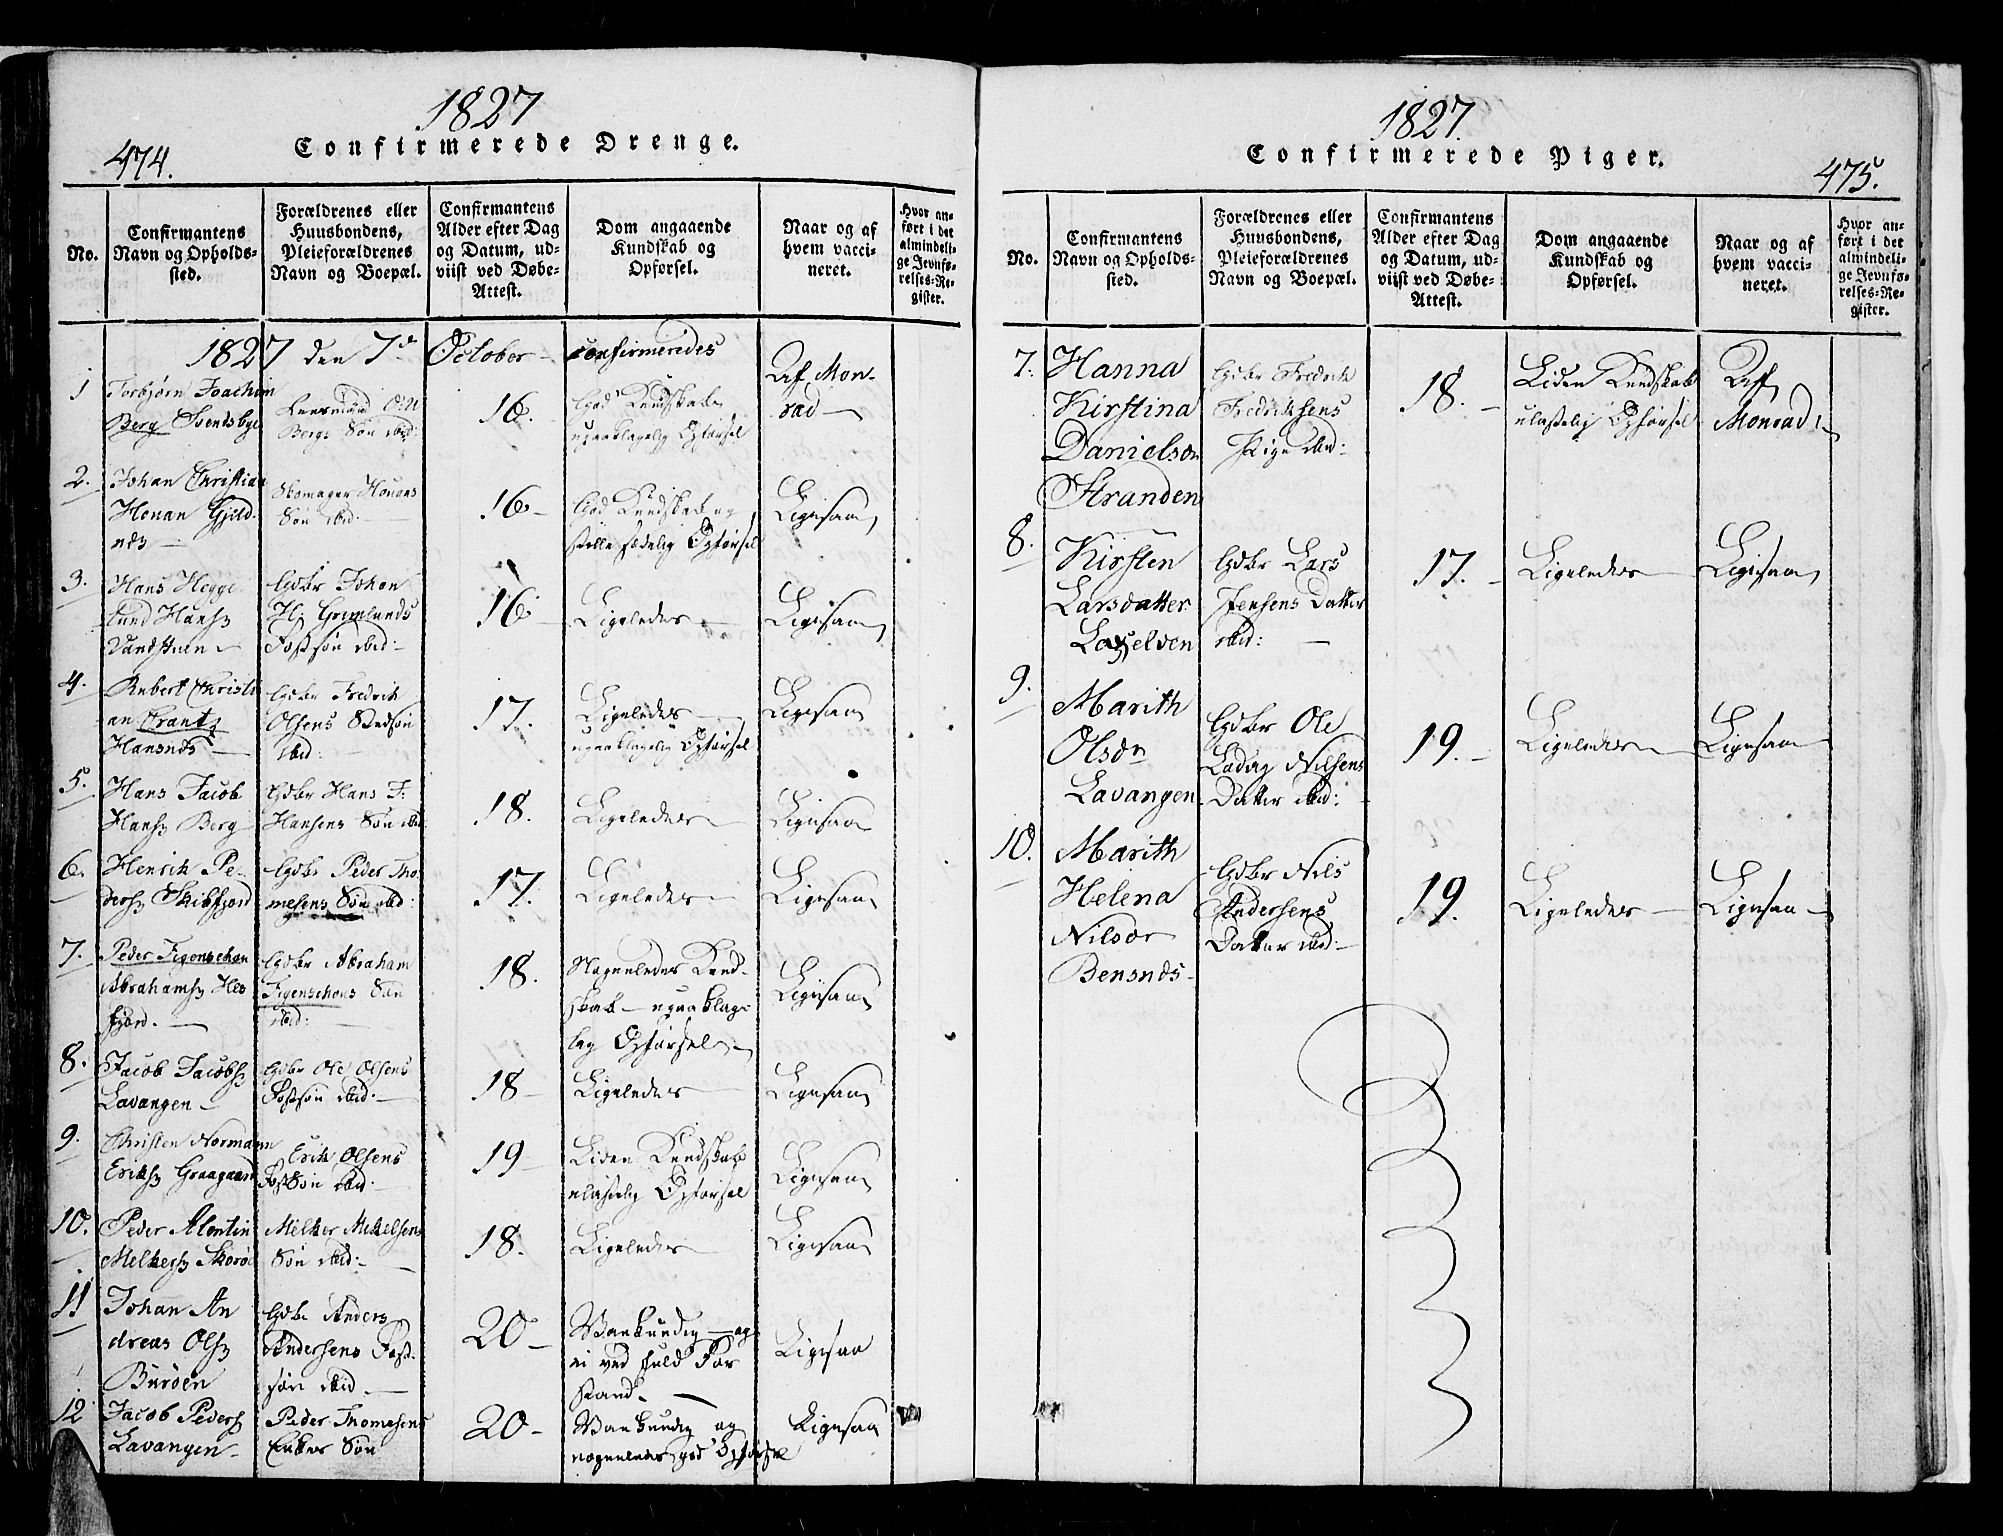 1827
474.
Confirmerede Drenge.
No.
Confirmantens
Navn og Opholds-
sted.
Forældrenes eller
Huusbondens,
Pleieforældrenes
Navn og Boepæl.
Confirmantens
Alder efter Dag
og Datum, ud-
viist ved Døbe-
Attest.
Dom angaaende
Kundskab og
Opførsel.
Naar og af
hvem vacci-
neret.
Hvor an-
ført i det
almindeli-
ge Jevnfø-
relses-Re-
gister.
1827 den 7de October confirmeredes
1
Torbjørn Joachim
Berg Svendsbye
Leensmand Ole
Bergs Søn ibid:
16.
God Kundskab
upaaklagelig Opførsel
Af Mon-
rad
2.
Johan Christian
Honan Gjeld-
næs
Skomager Honans
Søn ibid:
16
God Kundskab og
stille sædelig Opførsel
Ligesaa
3.
Hans Hegge
lund Hans
Vandstuen
Gdbr Johan
Hj Grønlunds
Fostsøn ibid:
16
Ligeledes
Ligesaa
4.
Rubert Christi
an Crantz
Hansnæs
Gdbr Fredrik
Olsens Stedsøn
ibid:
17.
Ligeledes
upaaklagelig Opførsel
Ligesaa
5.
Hans Jacob
Hans Berg
Gdbr Hans J:
Hansens Søn ibid
18.
Ligeledes
Ligesaa
6.
Henrik Pe-
ders Skibfjord
Gdbr Peder Tho
mesens Søn ibid:
17.
Ligeledes
Ligesaa
7.
Peder Figenschou
Abrahams Hes
fjord.
Gdbr Abraham
Figenschous Søn
ibid:
18.
Nogenledes Kund-
skab - upaaklage-
lig Opførsel
Ligesaa
8.
Jacob Jacobs
Lavangen
Gdbr Ole Olsens
Fostsøn ibid.
18
Ligeledes
Ligesaa
9.
Christen Normann
Eriks Graagaard
Erik Olsens
Fostsøn ibid.
19
Liden Kundskab
ulastelig Opførsel
Ligesaa
10.
Peder Alentin
Melkers Skorøe
Melker Mikelsens
Søn ibid:
18.
Ligeledes
Ligesaa
11
Johan An
dreas Ols
Burøen
Gdbr Anders
Andersens Fost-
søn ibid.
20
Vankundig og
ei ved fuld For
stand.
Ligesaa
12
Jacob Peders
Lavangen
Peder Thomesens
Enkes Søn
20
Vankundig og
nogenledes god Opførsel
Ligesaa
1827.
Confirmerede Piger.
475.
No.
Confirmantens
Navn og Opholds-
sted.
Forældrenes eller
Huusbondens,
Pleieforældrenes
Navn og Boepæl.
Confirmantens
Alder efter Dag
og Datum, ud-
viist ved Døbe-
Attest.
Dom angaaende
Kundskab og
Opførsel.
Naar og af
hvem vacci-
neret.
Hvor an-
ført i det
almindeli-
ge Jevnfø-
relses-Re-
gister.
7.
Hanna
Kirstina
Danielsdr
Stranden
Gdbr Fredrik
Fredriksens
Pige ibid:
18.
Liden Kundskab
ulastelig Opførsel
Af
Monrad
8.
Kirsten
Larsdatter
Laxelven
Gdbr Lars
Jensens Datter
ibid:
17.
Ligeledes
Ligesaa
9.
Marith
Olsdr
Lavangen
Gdbr Ole
Ladvg Nilsens
Datter ibid:
19.
Ligeledes
Ligesaa
10.
Marith
Helena
Nilsdr
Bensnæs
Gdbr Nils
Andersens
Datter ibid:
19.
Ligeledes
Ligesaa